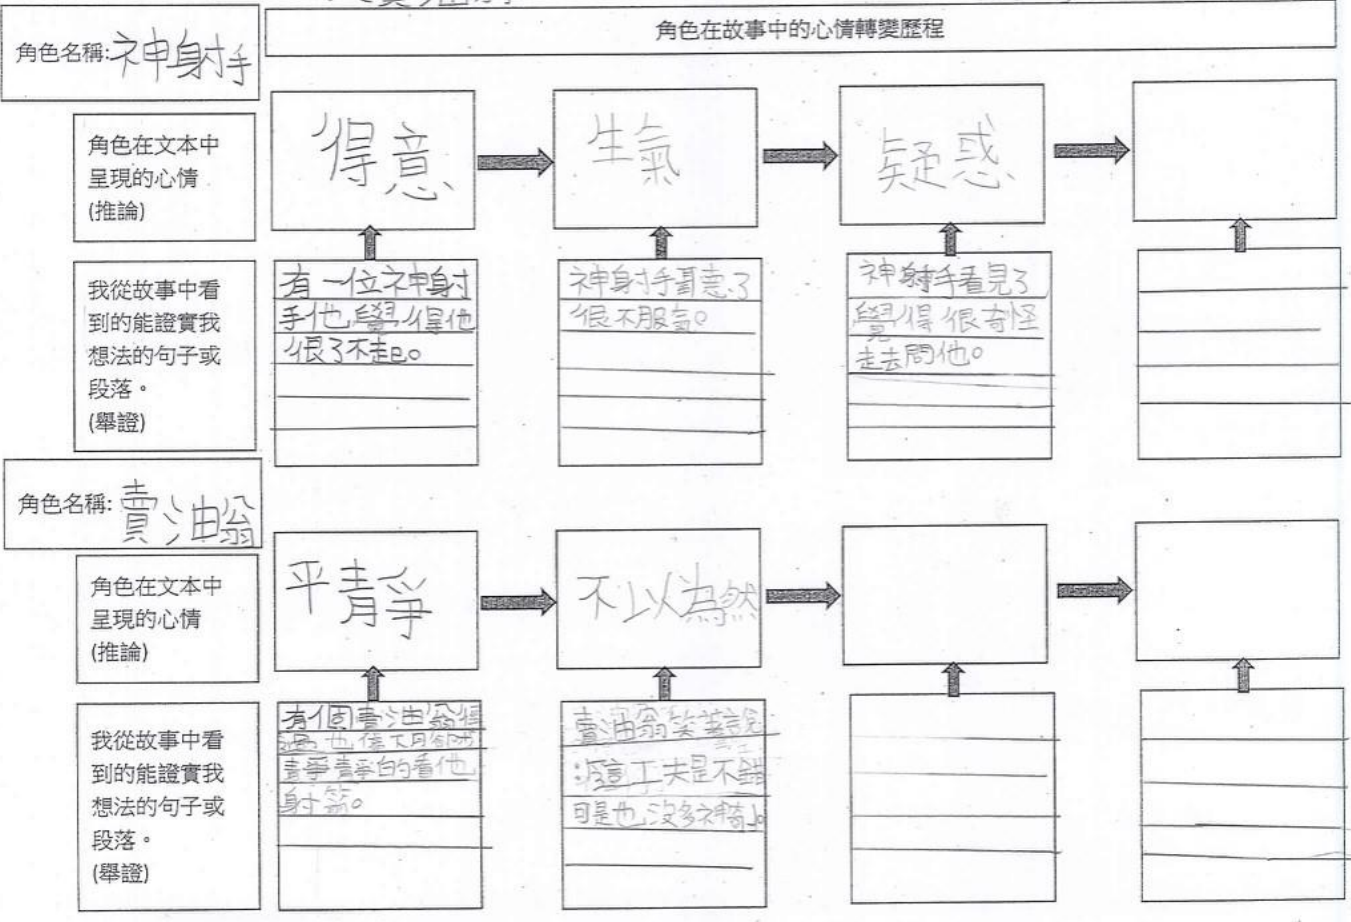 賣油翁
角色名稱:神射手
角色在故事中的心情轉變歷程
角色在文本中
呈現的心情
(推論)
得意
生氣
疑惑
我從故事中看
到的能證實我
想法的句子或
段落。
(舉證)
有一位神射
手他覺得他
很了不起。
神射手聽了
很不服氣。
神射手看見了
覺得很奇怪
走去問他。
角色名稱:賣油翁
角色在文本中
呈現的心情
(推論)
平靜
不以為然
我從故事中看
到的能證實我
想法的句子或
段落。
(舉證)
有個賣油翁經
過也停下
靜靜的看他
射箭。
賣油翁笑著說
:這工夫是不錯
可是也沒多神奇。